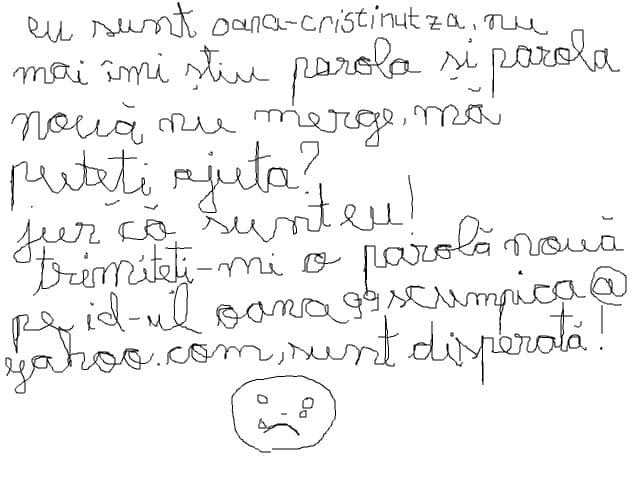 eu sunt oana-cristinutza, nu
mai îmi știu parola și parola
nouă nu merge, mă
puteți ajuta?
jur că sunt eu!
trimiteți-mi o parolă nouă
pe id-ul oana99scumpica@
yahoo.com, sunt disperată!